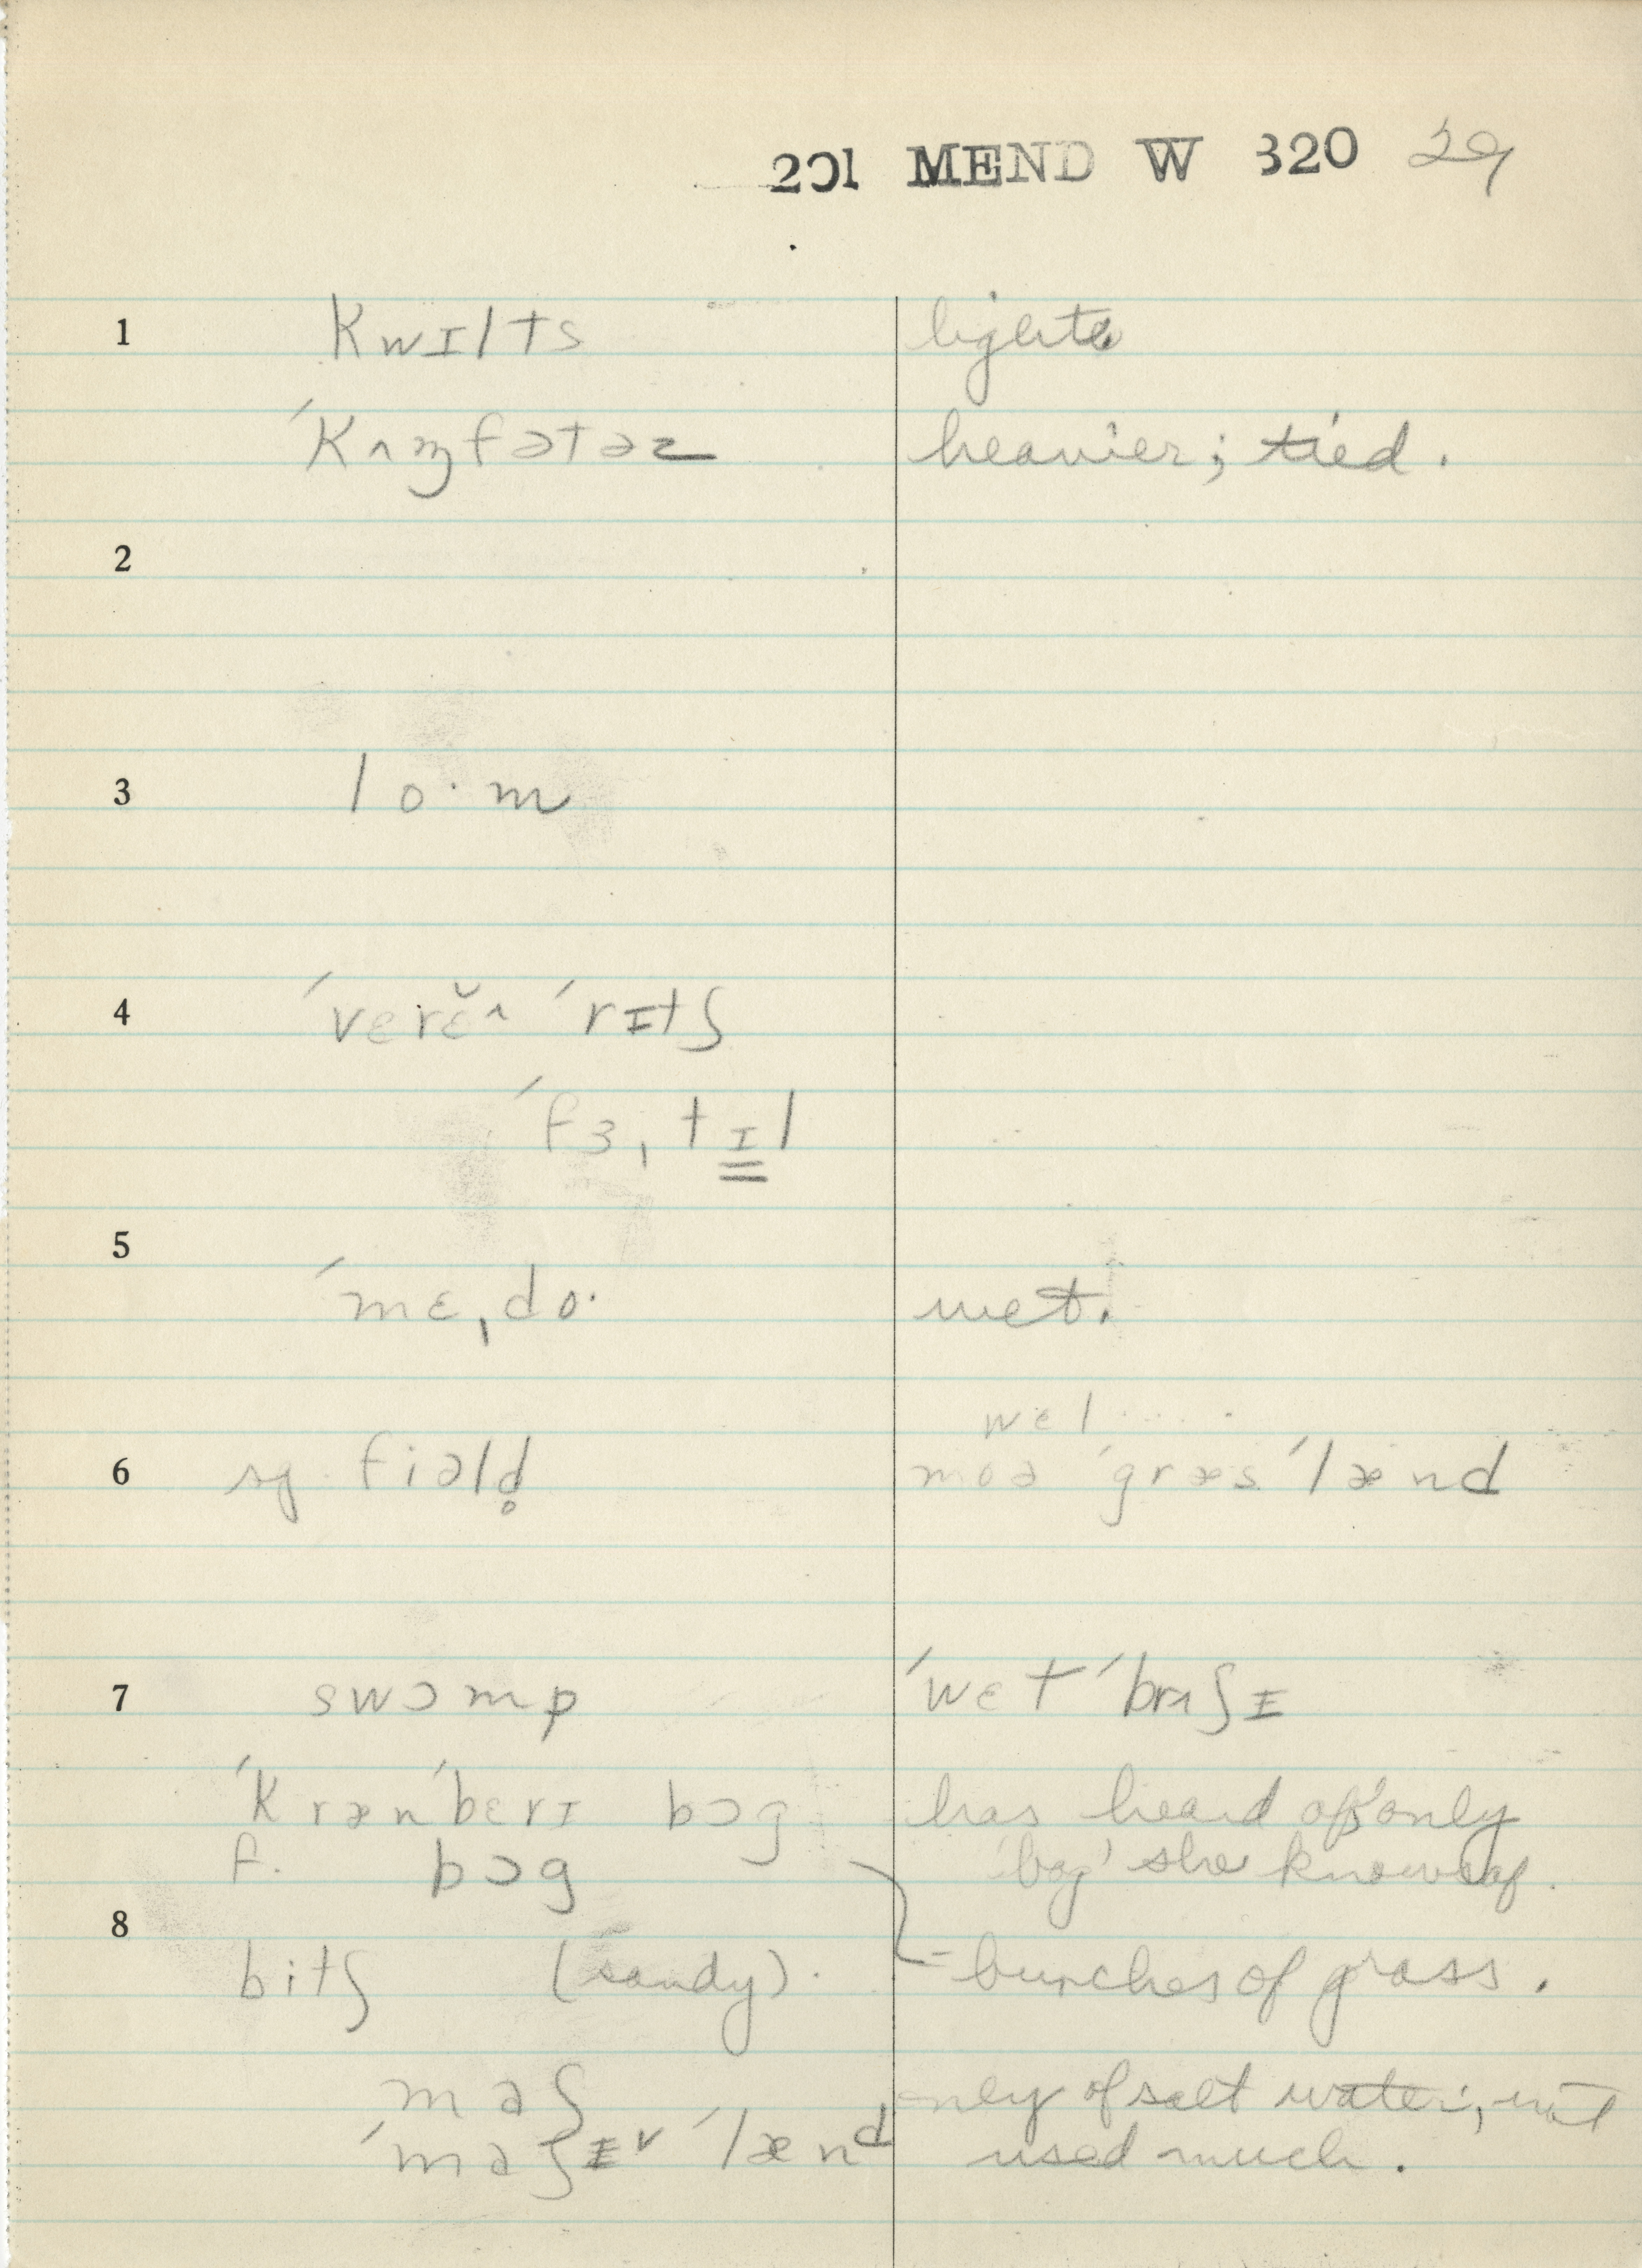 201 MEND W 320 29
1 kwɪlts lighter
ˈkʌɱfətəz heavier; tied.
2
3 lo·m
4 ˈvɛrɛ̆^ ˈrɪtʃ
ˈfɜˌtɪl
5
ˈmɛˌdo· wet.
wɛl . . . .
6 sg. fiəld̥ moə ˈgræs ˈlænd
7 swɔmp ˈwɛt ˈbrʌʃɪ
ˈkrænˈbɛrɪ bɔg has heard of; only
f. bɔg 'bog' she knows of.
8
bitʃ (sandy). = bunches of grass.
maʃ only of salt water; not
ˈmaʃɪ ˇ ˈlænd used much.